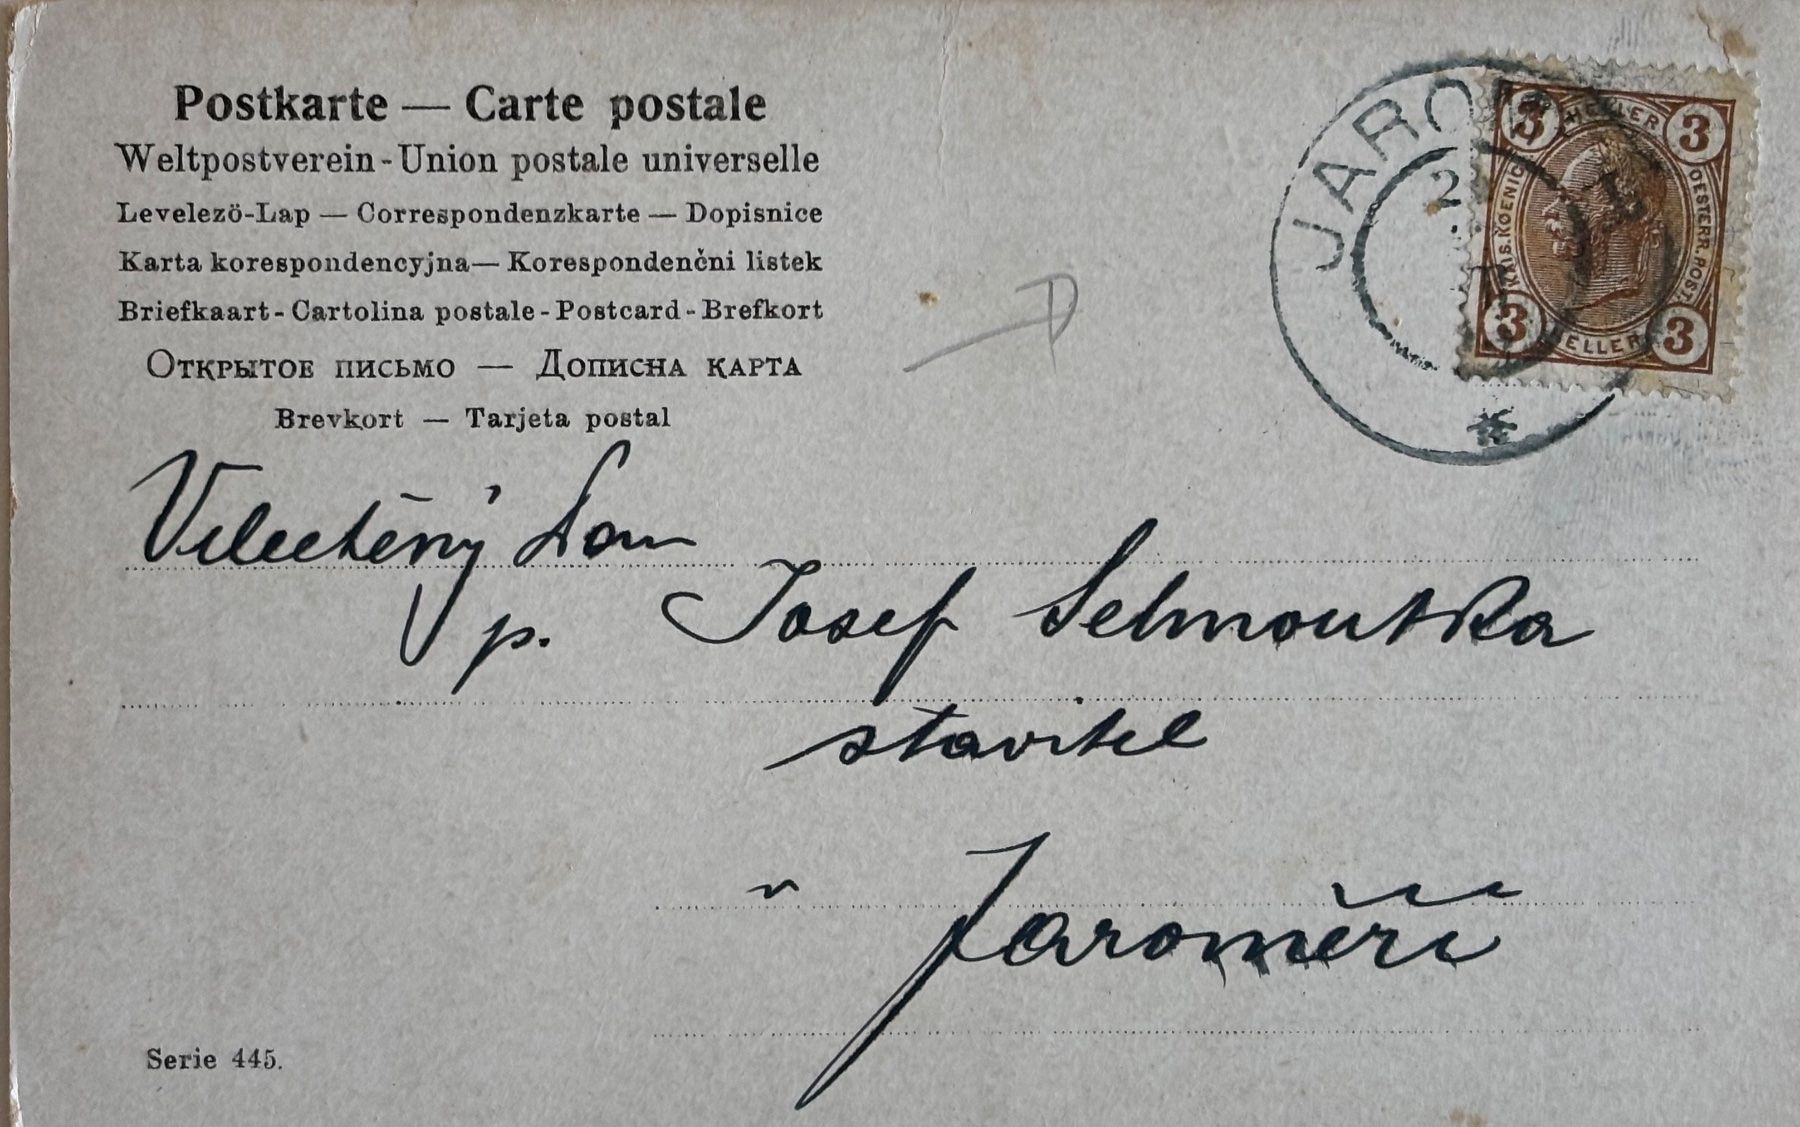 Postkarte — Carte postale
Weltpostverein - Union postale universelle
Levelezö-Lap — Correspondenzkarte — Dopisnice
Karta korespondencyjna — Korespondenčni listek
Briefkaart - Cartolina postale - Postcard - Brefkort
Открытое письмо — Дописна карта
Brevkort — Tarjeta postal
JARO
3 HELLER 3
KAIS. KOENIGL. OESTERR. POST.
3 HELLER 3
Velectěný Pan
p. Josef Selmoutka
stavitel
v Jaroměři
Serie 445.